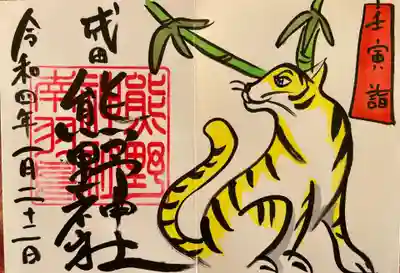 壬寅詣
成田
熊野神社
熊野
南羽鳥
令和四年一月二十二日